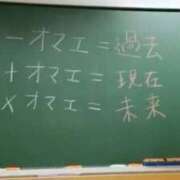 －オマエ＝過去
＋オマエ＝現在
×オマエ＝未来